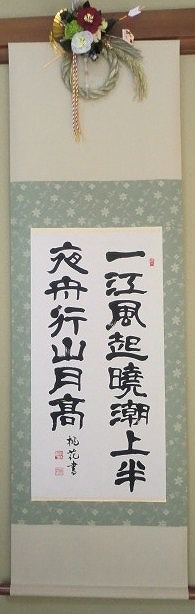 一江風起曉潮上半
夜舟行山月髙
桃花書